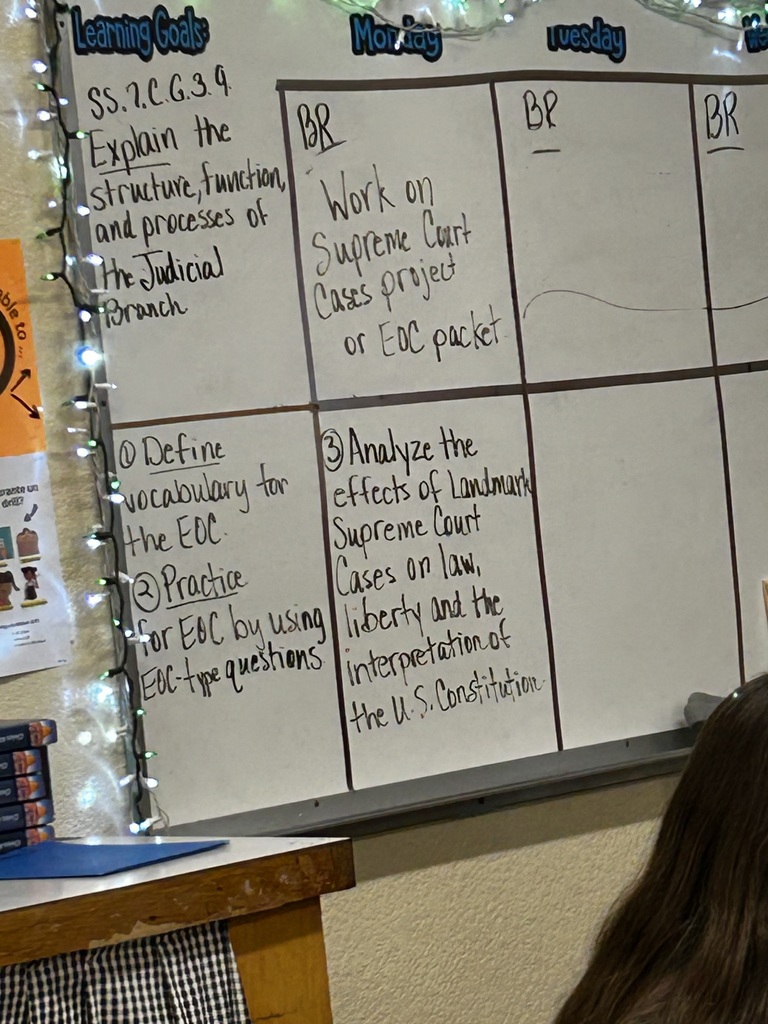 Learning Goals:
SS.7.C.G.3.9
Explain the
structure, function,
and processes of
the Judicial
Branch
Monday
BR
Work on
Supreme Court
Cases project
or EOC packet
Tuesday
BR
We
BR
① Define
vocabulary for
the EOC.
② Practice
for EOC by using
EOC-type questions
③ Analyze the
effects of Landmark
Supreme Court
Cases on law,
liberty and the
interpretation of
the U.S. Constitution
able to ...
Civics